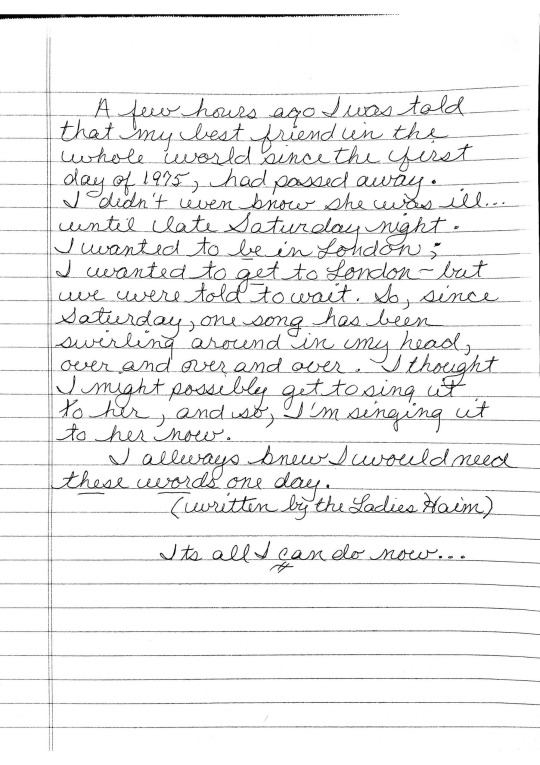 A few hours ago I was told
that my best friend in the
whole world since the first
day of 1975, had passed away.
I didn't even know she was ill...
until late Saturday night.
I wanted to be in London;
I wanted to get to London - but
we were told to wait. So, since
Saturday, one song has been
swirling around in my head,
over and over and over. I thought
I might possibly get to sing it
to her, and so, I'm singing it
to her now.
I allways knew I would need
these words one day.
(written by the Ladies Haim)
Its all I can do now...